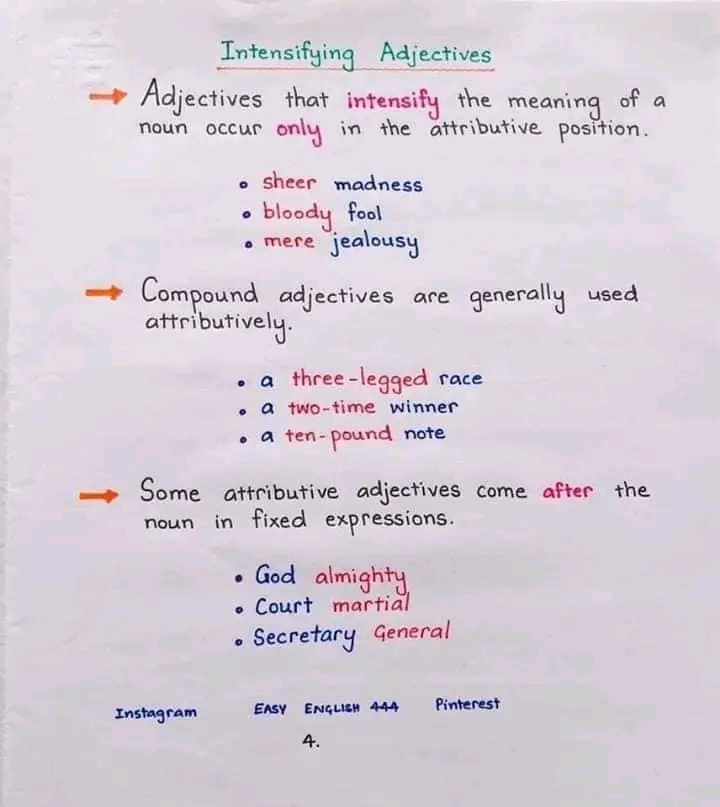 Intensifying Adjectives
→ Adjectives that intensify the meaning of a
noun occur only in the attributive position.
• sheer madness
• bloody fool
• mere jealousy
→ Compound adjectives are generally used
attributively.
• a three-legged race
• a two-time winner
• a ten-pound note
→ Some attributive adjectives come after the
noun in fixed expressions.
• God almighty
• Court martial
• Secretary General
Instagram EASY ENGLISH 444 Pinterest
4.